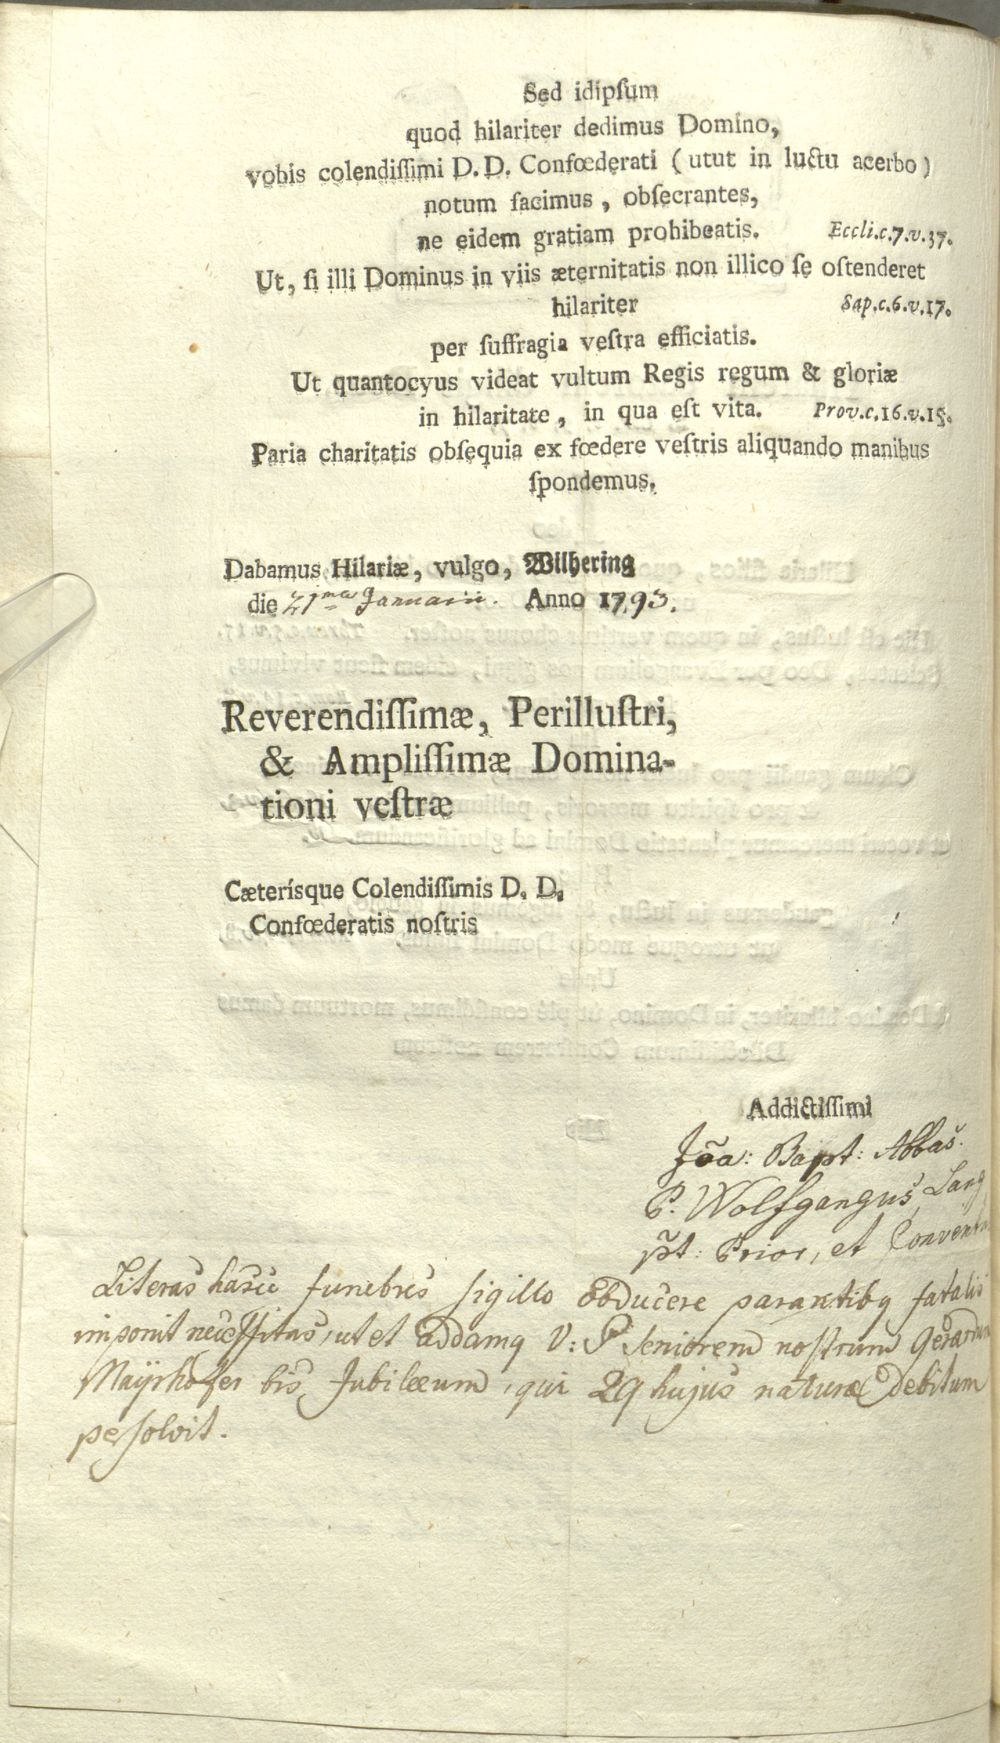 Sed idipſum
quod hilariter dedimus Domino,
vobis colendiſſimi D. D. Confœderati ( utut in luctu acerbo )
notum facimus , obſecrantes,
ne eidem gratiam prohibeatis. Eccli.c.7.v.37.
Ut, ſi illi Dominus in viis æternitatis non illico ſe oſtenderet
hilariter Sap.c.6.v.17.
per ſuffragia veſtra efficiatis.
Ut quantocyus videat vultum Regis regum & gloriæ
in hilaritate , in qua eſt vita. Prov.c.16.v.15.
Paria charitatis obſequia ex fœdere veſtris aliquando manibus
ſpondemus.
Dabamus Hilariæ, vulgo, Wilhering
die 21ma Januarii. Anno 1793.
Reverendiſſimæ, Perilluſtri,
& Ampliſſimæ Domina-
tioni veſtræ
Cæterísque Colendiſſimis D. D.
Confœderatis noſtris
Addictiſſimi
Jõa: Bapt: Abbas.
P. Wolfgangus Lang
p̃t: Prior, et Convent
Literas hasce funebres sigillo obducere parantibq fatalis
imponit neceſſitas, ut et addamq V: P. Seniorem noſtrum Gerardum
Maÿrhofer bis Jubilæum, qui 29 hujus naturæ debitum
peſolvit.